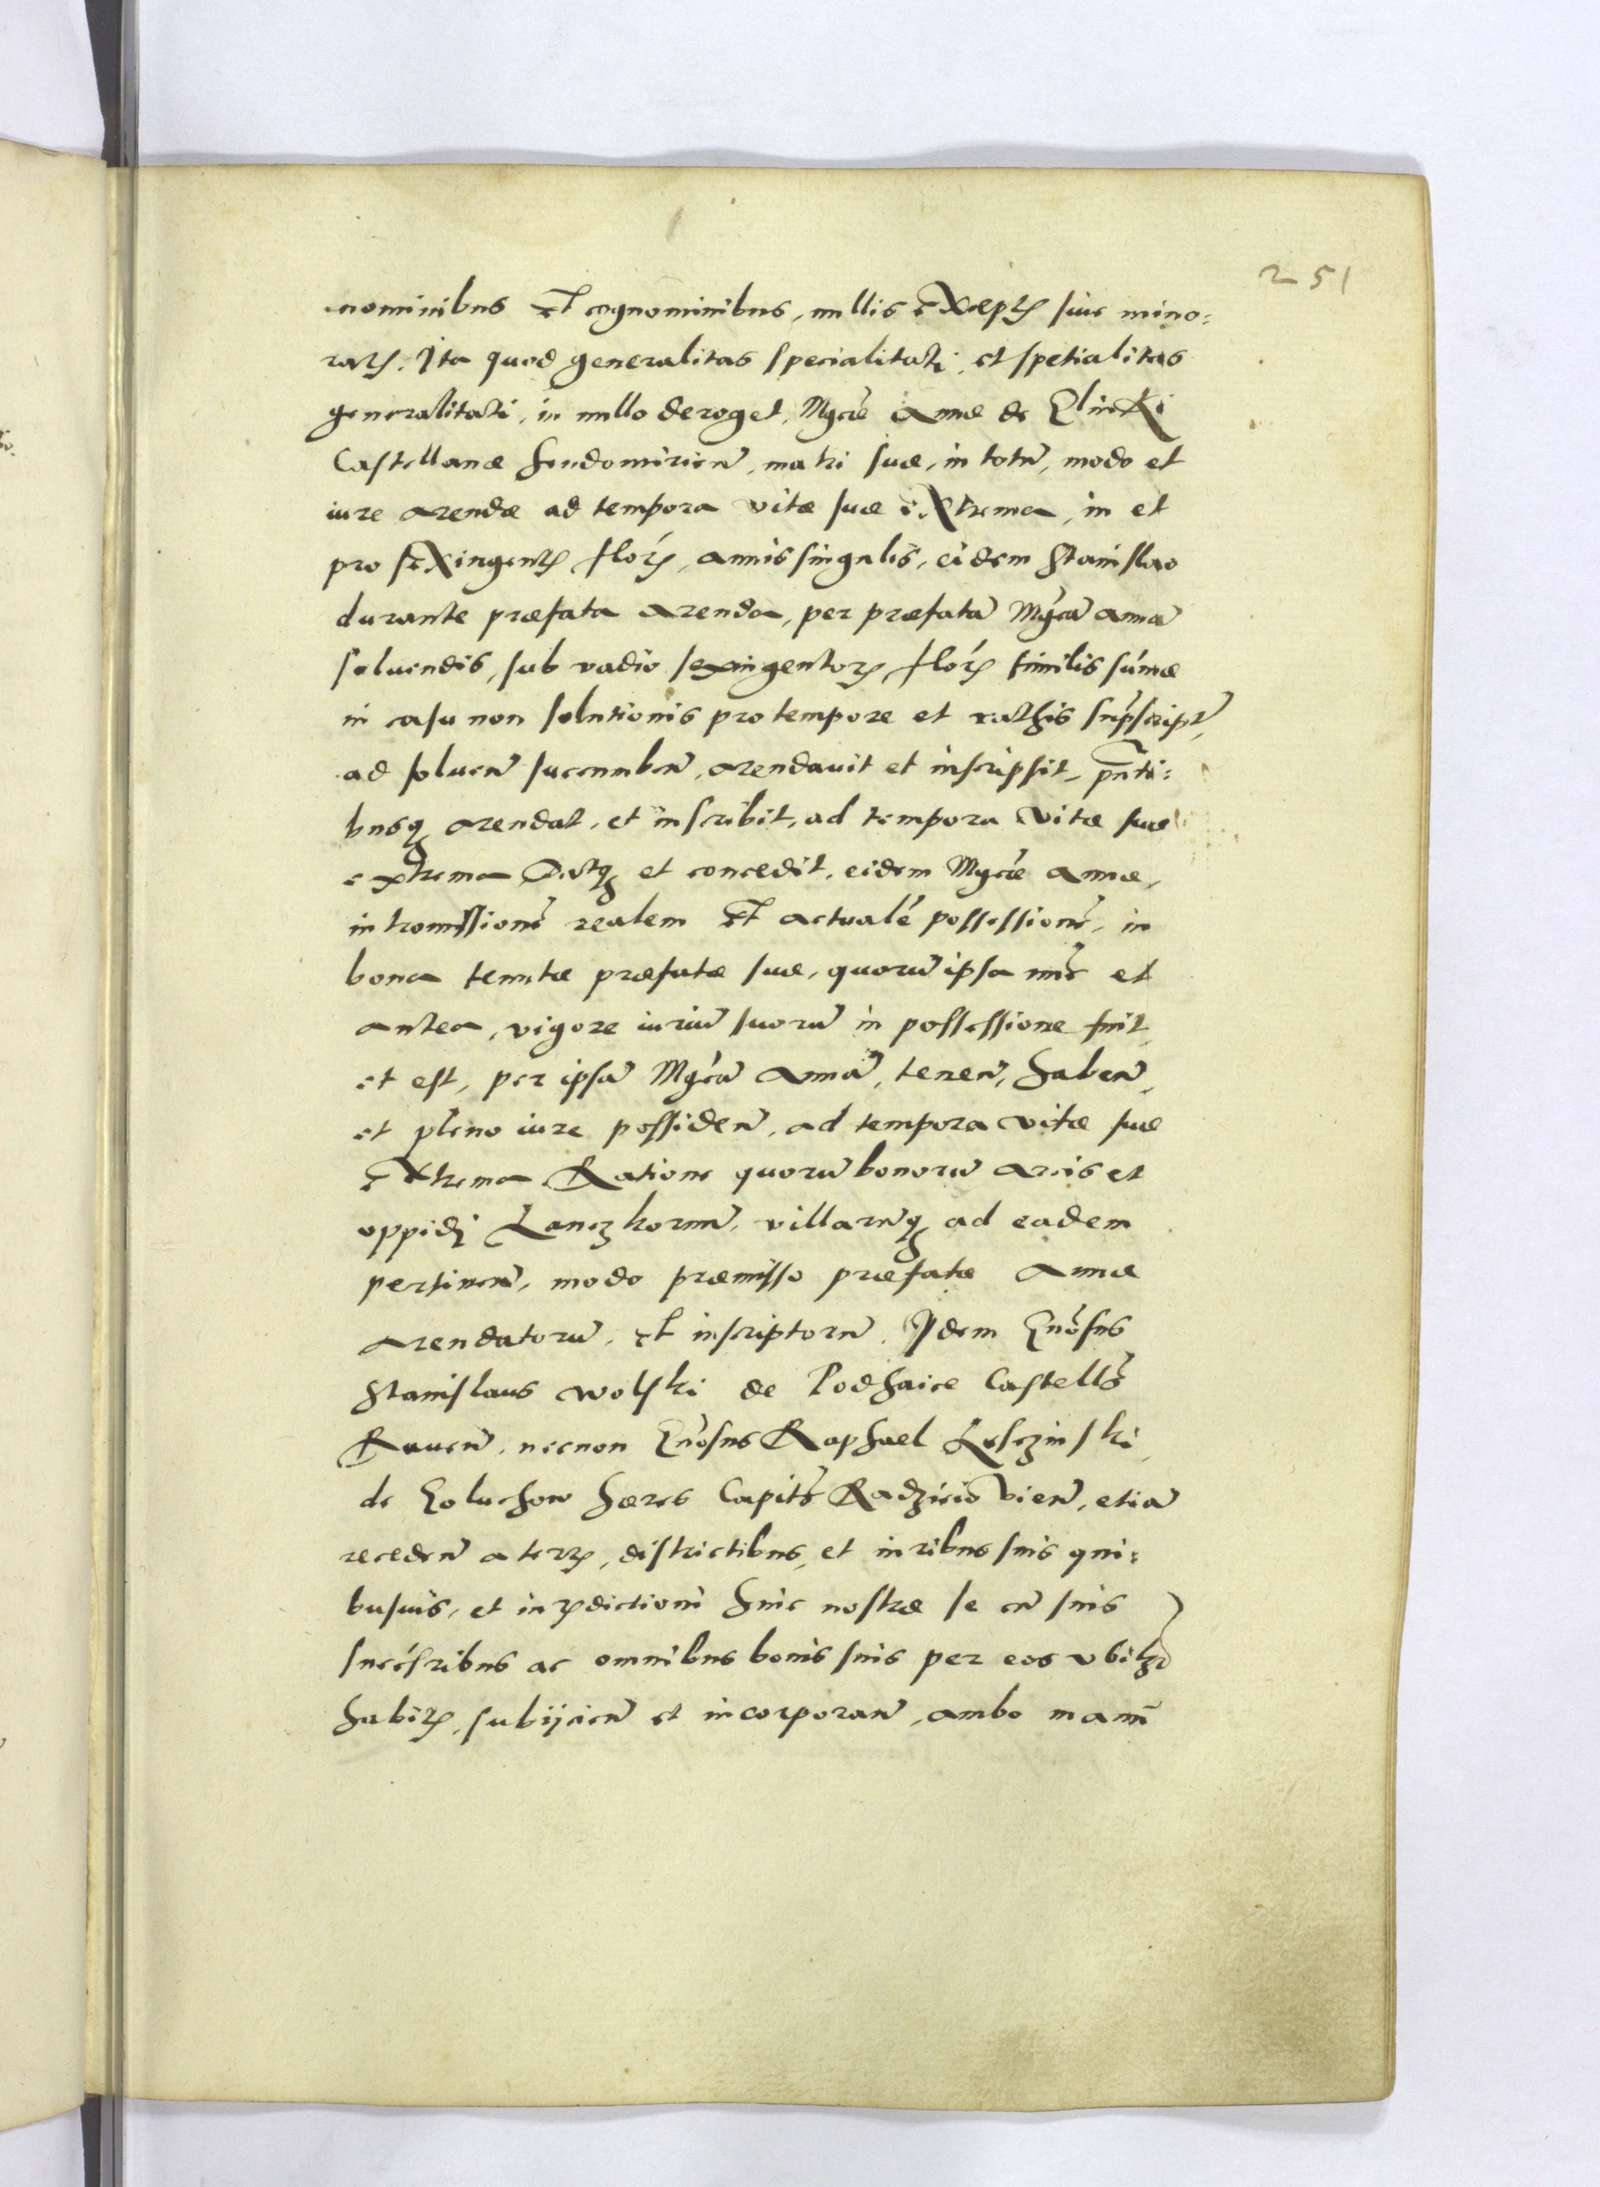 251
nominibus et cognominibus, nullis exceptꝭ siue mino:
ratꝭ. Ita quod generalitas specialitati, et spetialitas
generalitati, in nullo deroget, Mgcæ Annæ de
Castellanæ Sendomirien̄, matri suæ, in totū, modo et
iure arendæ ad tempora vitæ suæ extrema, in et
pro sexingentꝭ florꝭ, annis singulis, eidem Stanislao
durante præfata arenda, per præfatā Mgcā Annā
soluendis, sub vadio sexingentorꝭ florꝭ similis sum̄æ
in casu non solutionis pro tempore et rathis suprascript̄,
ad soluen̄ succumben̄, arendauit et inscripsit, pn̄ti:
busqꝫ arendat, et inscribit, ad tempora vitæ suæ
extrema Datqꝫ et concedit, eidem Mgcæ Annæ,
intromissionē realem et actualē possessionē, in
bona tenutæ præfatæ suæ, quorū ipsa nūc et
antea, vigore iuriū suorū in possessione fuit
et est, per ipsā Mgcā Annā, tenen̄, haben̄,
et pleno iure possiden̄, ad tempora vitæ suæ
extrema Ratione quorū bonorū arcis et
oppidi Lanczkorun̄, villarūqꝫ ad eadem
pertinen̄, modo præmisso præfatæ Annæ
arendatorū, et inscriptorū. Idem Gn̄osus
Stanislaus Wolski de Podhaice Castellꝰ
Rauen̄, necnon Gn̄osus Raphael Lesczinski,
de Goluchow hæres Capitꝰ Radzieiovien̄, etiā
receden̄ a terrꝭ, districtibus, et iuribus suis qui:
busuis, et iurꝭdictioni huic nostræ se cū suis
succēsribus ac omnibus bonis suis per eos vbilꝫ
habitꝭ, subijcien̄ et incorporan̄, ambo manū